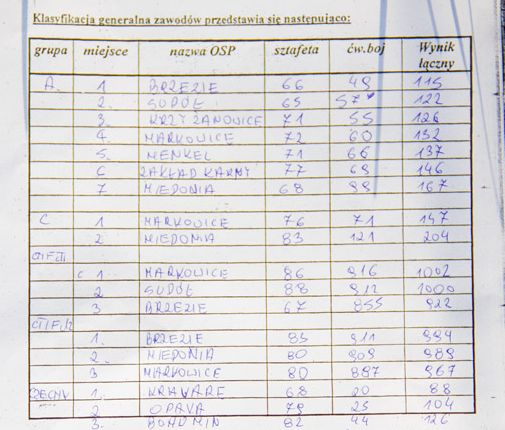 Klasyfikacja generalna zawodów przedstawia się następująco:
grupa miejsce nazwa OSP sztafeta ćw.boj Wynik łączny
A. 1 BRZEZIE 66 49 115
2. SUDÓŁ 65 57 122
3. KRZYŻANOWICE 71 55 126
4. MARKOWICE 72 60 132
5. MENKEL 71 66 137
6 ZAKŁAD KARNY 77 69 146
7 MIEDONIA 68 99 167
C 1 MARKOWICE 76 71 147
2 MIEDONIA 83 121 204
1 MARKOWICE 86 916 1002
2 SUDÓŁ 88 912 1000
3 BRZEZIE 67 855 922
1. BRZEZIE 83 911 994
2. MIEDONIA 80 909 989
3 MARKOWICE 80 887 967
1. KRAVARE 68 20 88
2 OPAVA 79 25 104
3. BOHUMIN 82 44 126